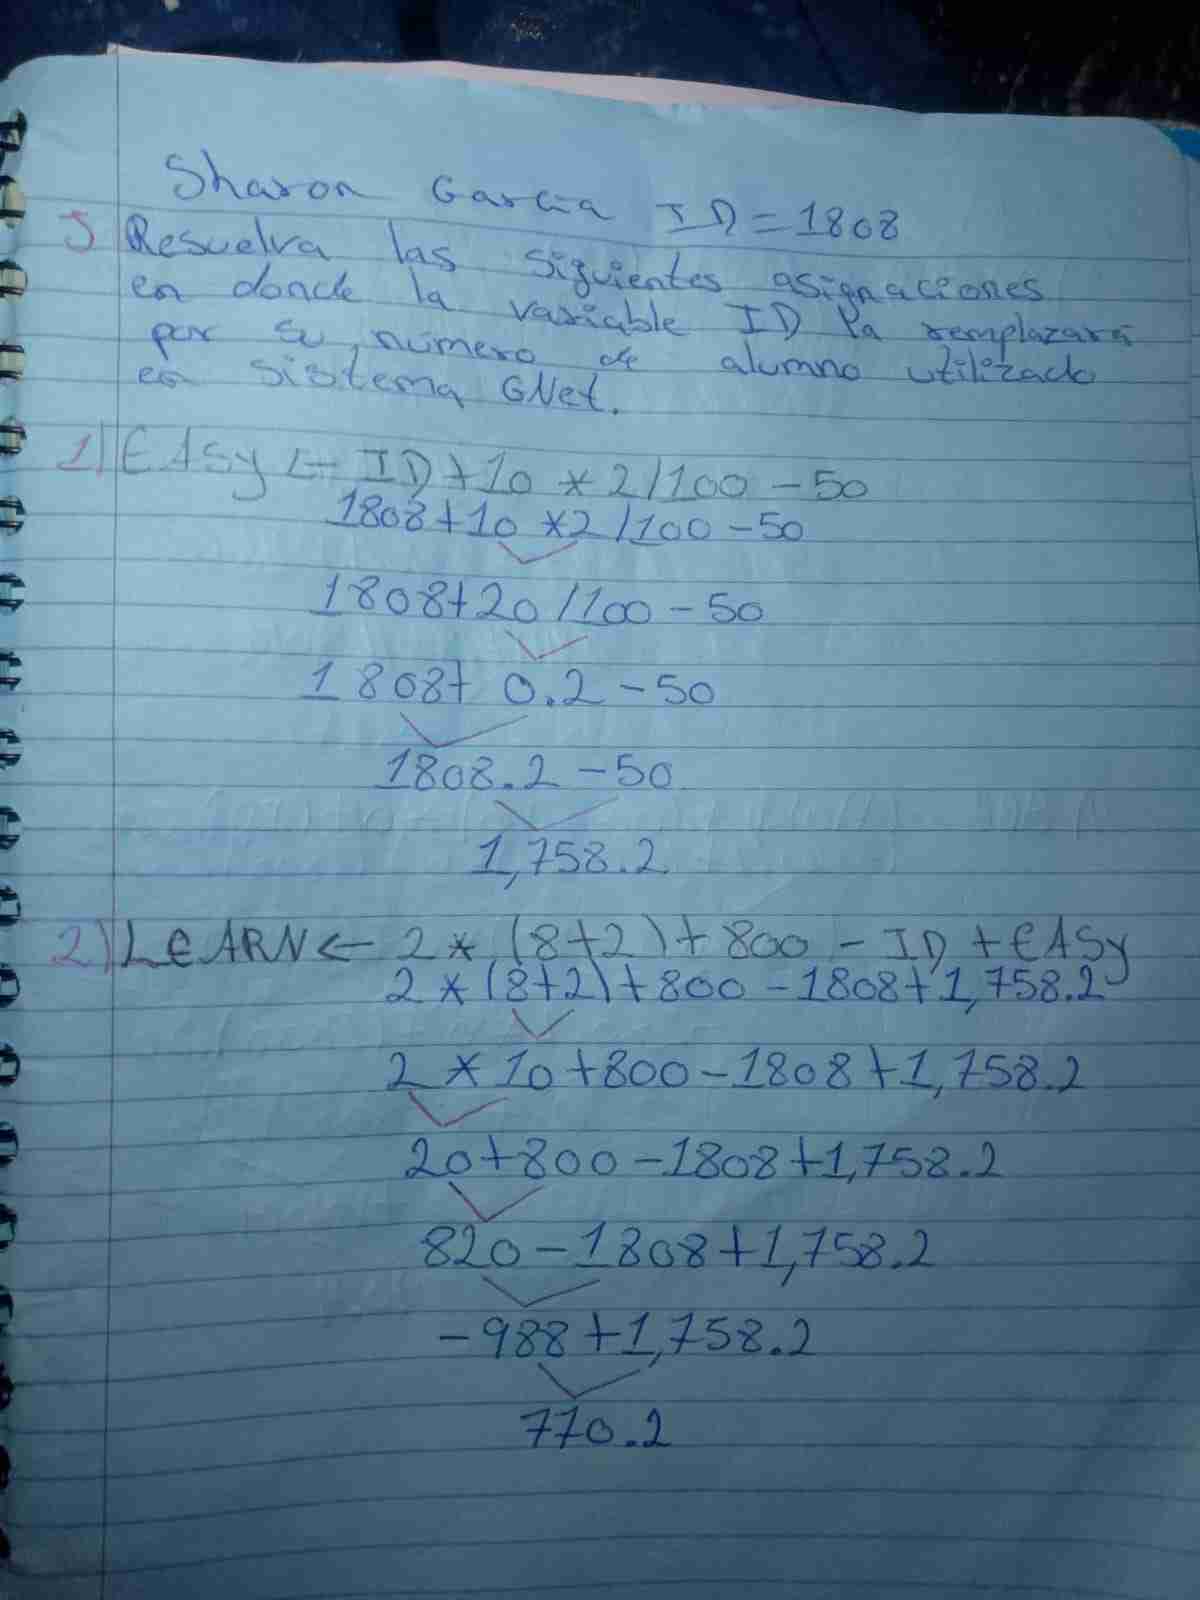 Sharon Garcia ID=1808
5 Resuelva las siguientes asignaciones
en donde la variable ID la remplazará
por su número de alumno utilizado
en sistema GNet.
1) EASy ← ID+10 *2/100-50
1808+10 *2/100-50
1808+20/100-50
1808+ 0.2-50
1808.2-50
1,758.2
2) LeARN← 2* (8+2)+800-ID+EASy
2*(8+2)+800-1808+1,758.2
2*10+800-1808+1,758.2
20+800-1808+1,758.2
820-1808+1,758.2
-988+1,758.2
770.2